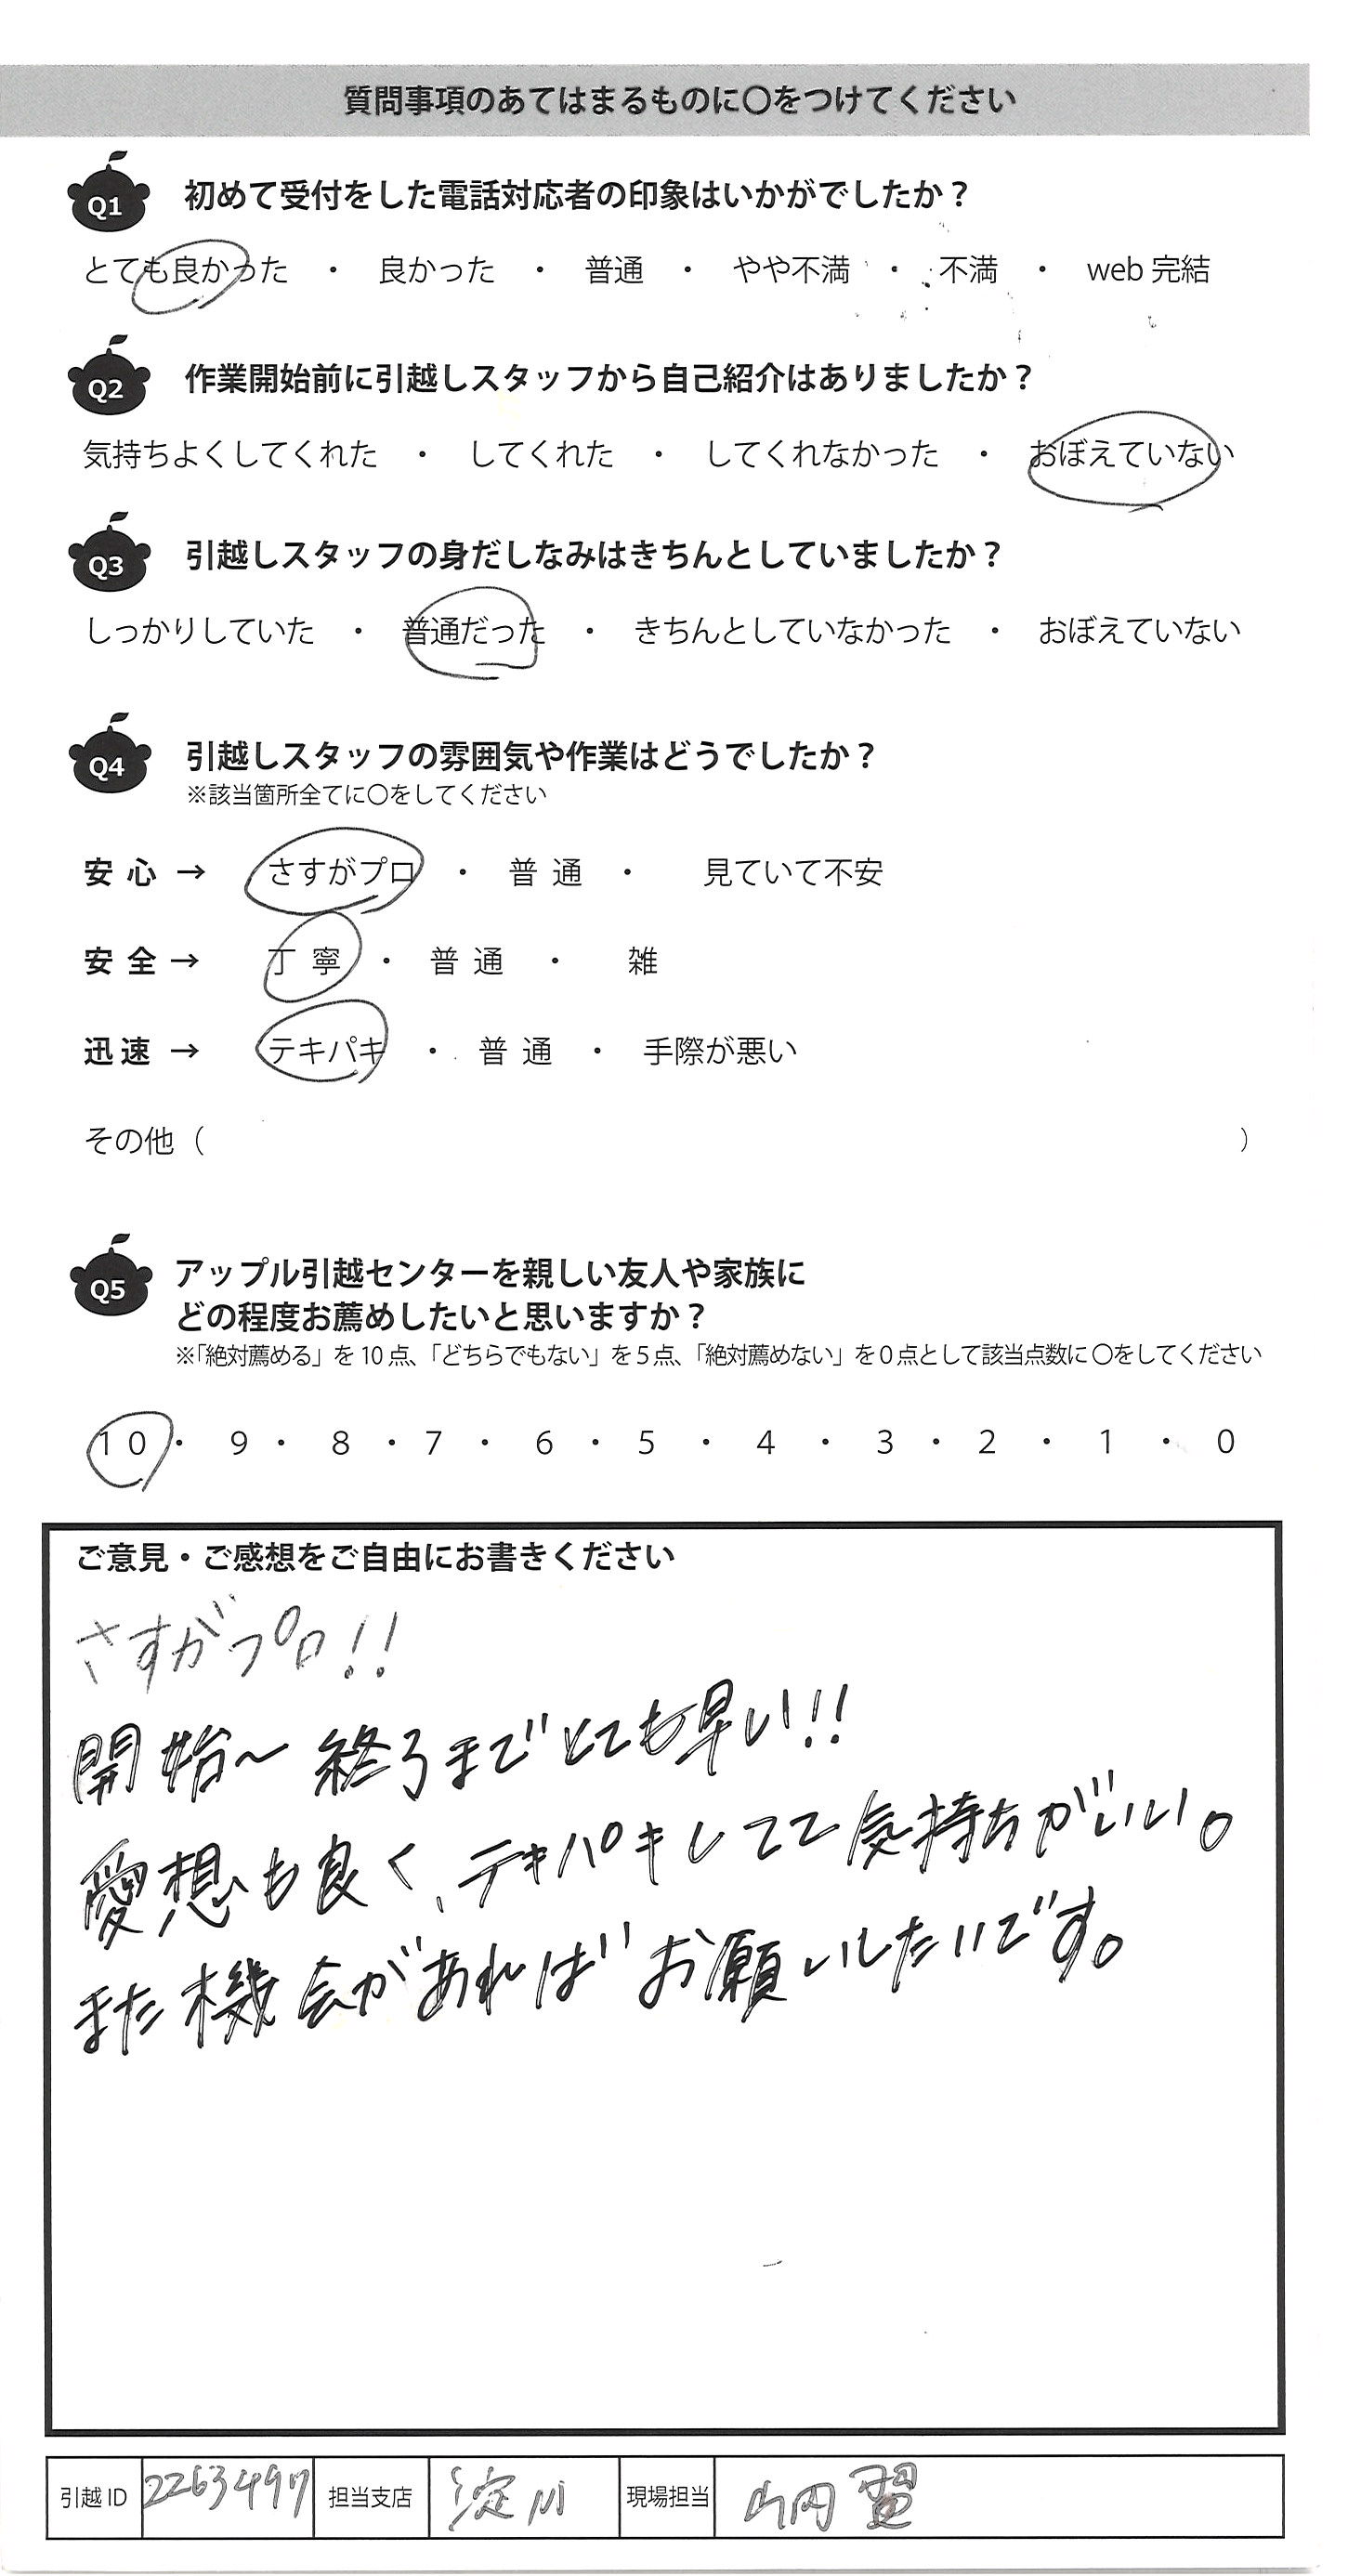 質問事項のあてはまるものに〇をつけてください
Q1 初めて受付をした電話対応者の印象はいかがでしたか？
とても良かった ・ 良かった ・ 普通 ・ やや不満 ・ 不満 ・ web 完結
Q2 作業開始前に引越しスタッフから自己紹介はありましたか？
気持ちよくしてくれた ・ してくれた ・ してくれなかった ・ おぼえていない
Q3 引越しスタッフの身だしなみはきちんとしていましたか？
しっかりしていた ・ 普通だった ・ きちんとしていなかった ・ おぼえていない
Q4 引越しスタッフの雰囲気や作業はどうでしたか？
※該当箇所全てに〇をしてください
安心 → さすがプロ ・ 普通 ・ 見ていて不安
安全 → 丁寧 ・ 普通 ・ 雑
迅速 → テキパキ ・ 普通 ・ 手際が悪い
その他（ ）
Q5 アップル引越センターを親しい友人や家族に
どの程度お薦めしたいと思いますか？
※「絶対薦める」を10点、「どちらでもない」を5点、「絶対薦めない」を0点として該当点数に〇をしてください
10 ・ 9 ・ 8 ・ 7 ・ 6 ・ 5 ・ 4 ・ 3 ・ 2 ・ 1 ・ 0
ご意見・ご感想をご自由にお書きください
さすがプロ!!
開始～終了までとても早い!!
愛想も良く、テキパキしてて気持ちがいい。
また機会があればお願いしたいです。
引越ID 2263497 担当支店 淀川 現場担当